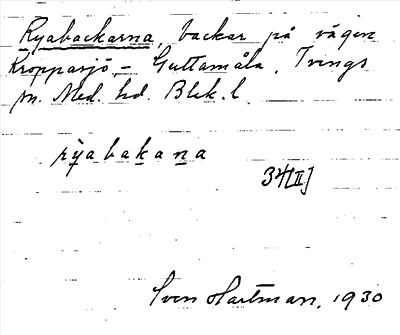 Ryabackarna, backar på vägen
Kropparsjö – Guttamåla, Tvings
sn. Med. hd. Blek. l.
rẏabakana
34[II]
Sven Hartman, 1930